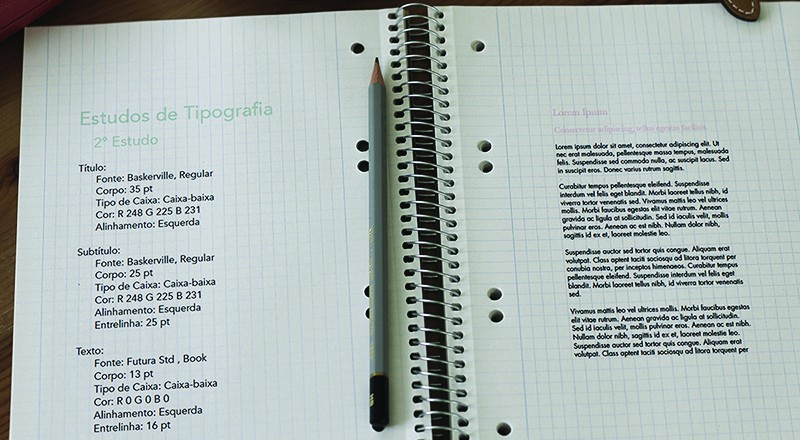 Estudos de Tipografia
2º Estudo
Título:
Fonte: Baskerville, Regular
Corpo: 35 pt
Tipo de Caixa: Caixa-baixa
Cor: R 248 G 225 B 231
Alinhamento: Esquerda
Subtítulo:
Fonte: Baskerville, Regular
Corpo: 25 pt
Tipo de Caixa: Caixa-baixa
Cor: R 248 G 225 B 231
Alinhamento: Esquerda
Entrelinha: 25 pt
Texto:
Fonte: Futura Std , Book
Corpo: 13 pt
Tipo de Caixa: Caixa-baixa
Cor: R 0 G 0 B 0
Alinhamento: Esquerda
Entrelinha: 16 pt
Lorem Ipsum
Consectetur adipiscing, tellus egestas facilisis.
Lorem ipsum dolor sit amet, consectetur adipiscing elit. Ut
nec erat malesuada, pellentesque massa tempus, malesuada
sapien. Suspendisse sed commodo nulla, ac suscipit lacus. Sed
in suscipit eros. Donec varius rutrum sagittis.
Curabitur tempus pellentesque eleifend. Suspendisse
interdum vel felis eget blandit. Morbi laoreet tellus nibh, id
viverra tortor venenatis sed. Vivamus mattis leo vel ultrices
mollis. Morbi faucibus egestas elit vitae rutrum. Aenean
gravida ac ligula at sollicitudin. Sed id iaculis velit, mollis
pulvinar eros. Aenean mattis congue. Nullam dolor nibh,
sagittis id ex et, laoreet molestie leo.
Suspendisse auctor sed tortor quis congue. Aliquam erat
volutpat. Class aptent taciti sociosqu ad litora torquent per
conubia nostra, per inceptos himenaeos. Curabitur tempus
pellentesque eleifend. Suspendisse interdum vel felis eget
blandit. Morbi laoreet tellus nibh, id viverra tortor venenatis
sed.
Vivamus mattis leo vel ultrices mollis. Morbi faucibus egestas
elit vitae rutrum. Aenean gravida ac ligula at sollicitudin.
Sed id iaculis velit, mollis pulvinar eros. Aenean mattis congue.
Nullam dolor nibh, sagittis id ex et, laoreet molestie leo.
Suspendisse auctor sed tortor quis congue. Aliquam erat
volutpat. Class aptent taciti sociosqu ad litora torquent per